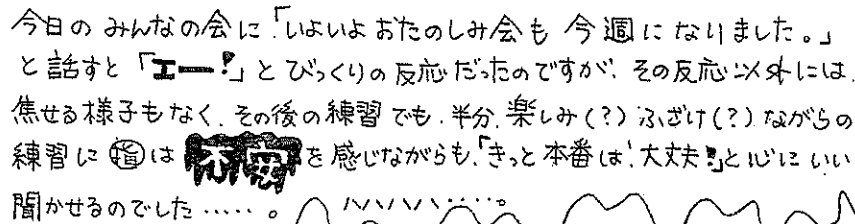 今日の みんなの会に「いよいよ おたのしみ会も 今週 になりました。」
と話すと「エー!」とびっくりの反応だったのですが、その反応以外には、
焦せる様子もなく、その後の練習でも、半分、楽しみ(?)ふざけ(?)ながらの
練習に 指は 不安を感じながらも、「きっと本番は、大丈夫!」と心にいい
聞かせるのでした……。ハハハハ……。